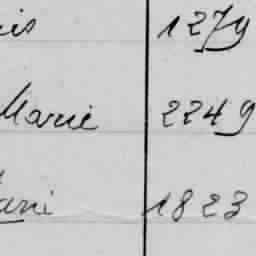 is 1279
Marie 2249
ani 1823